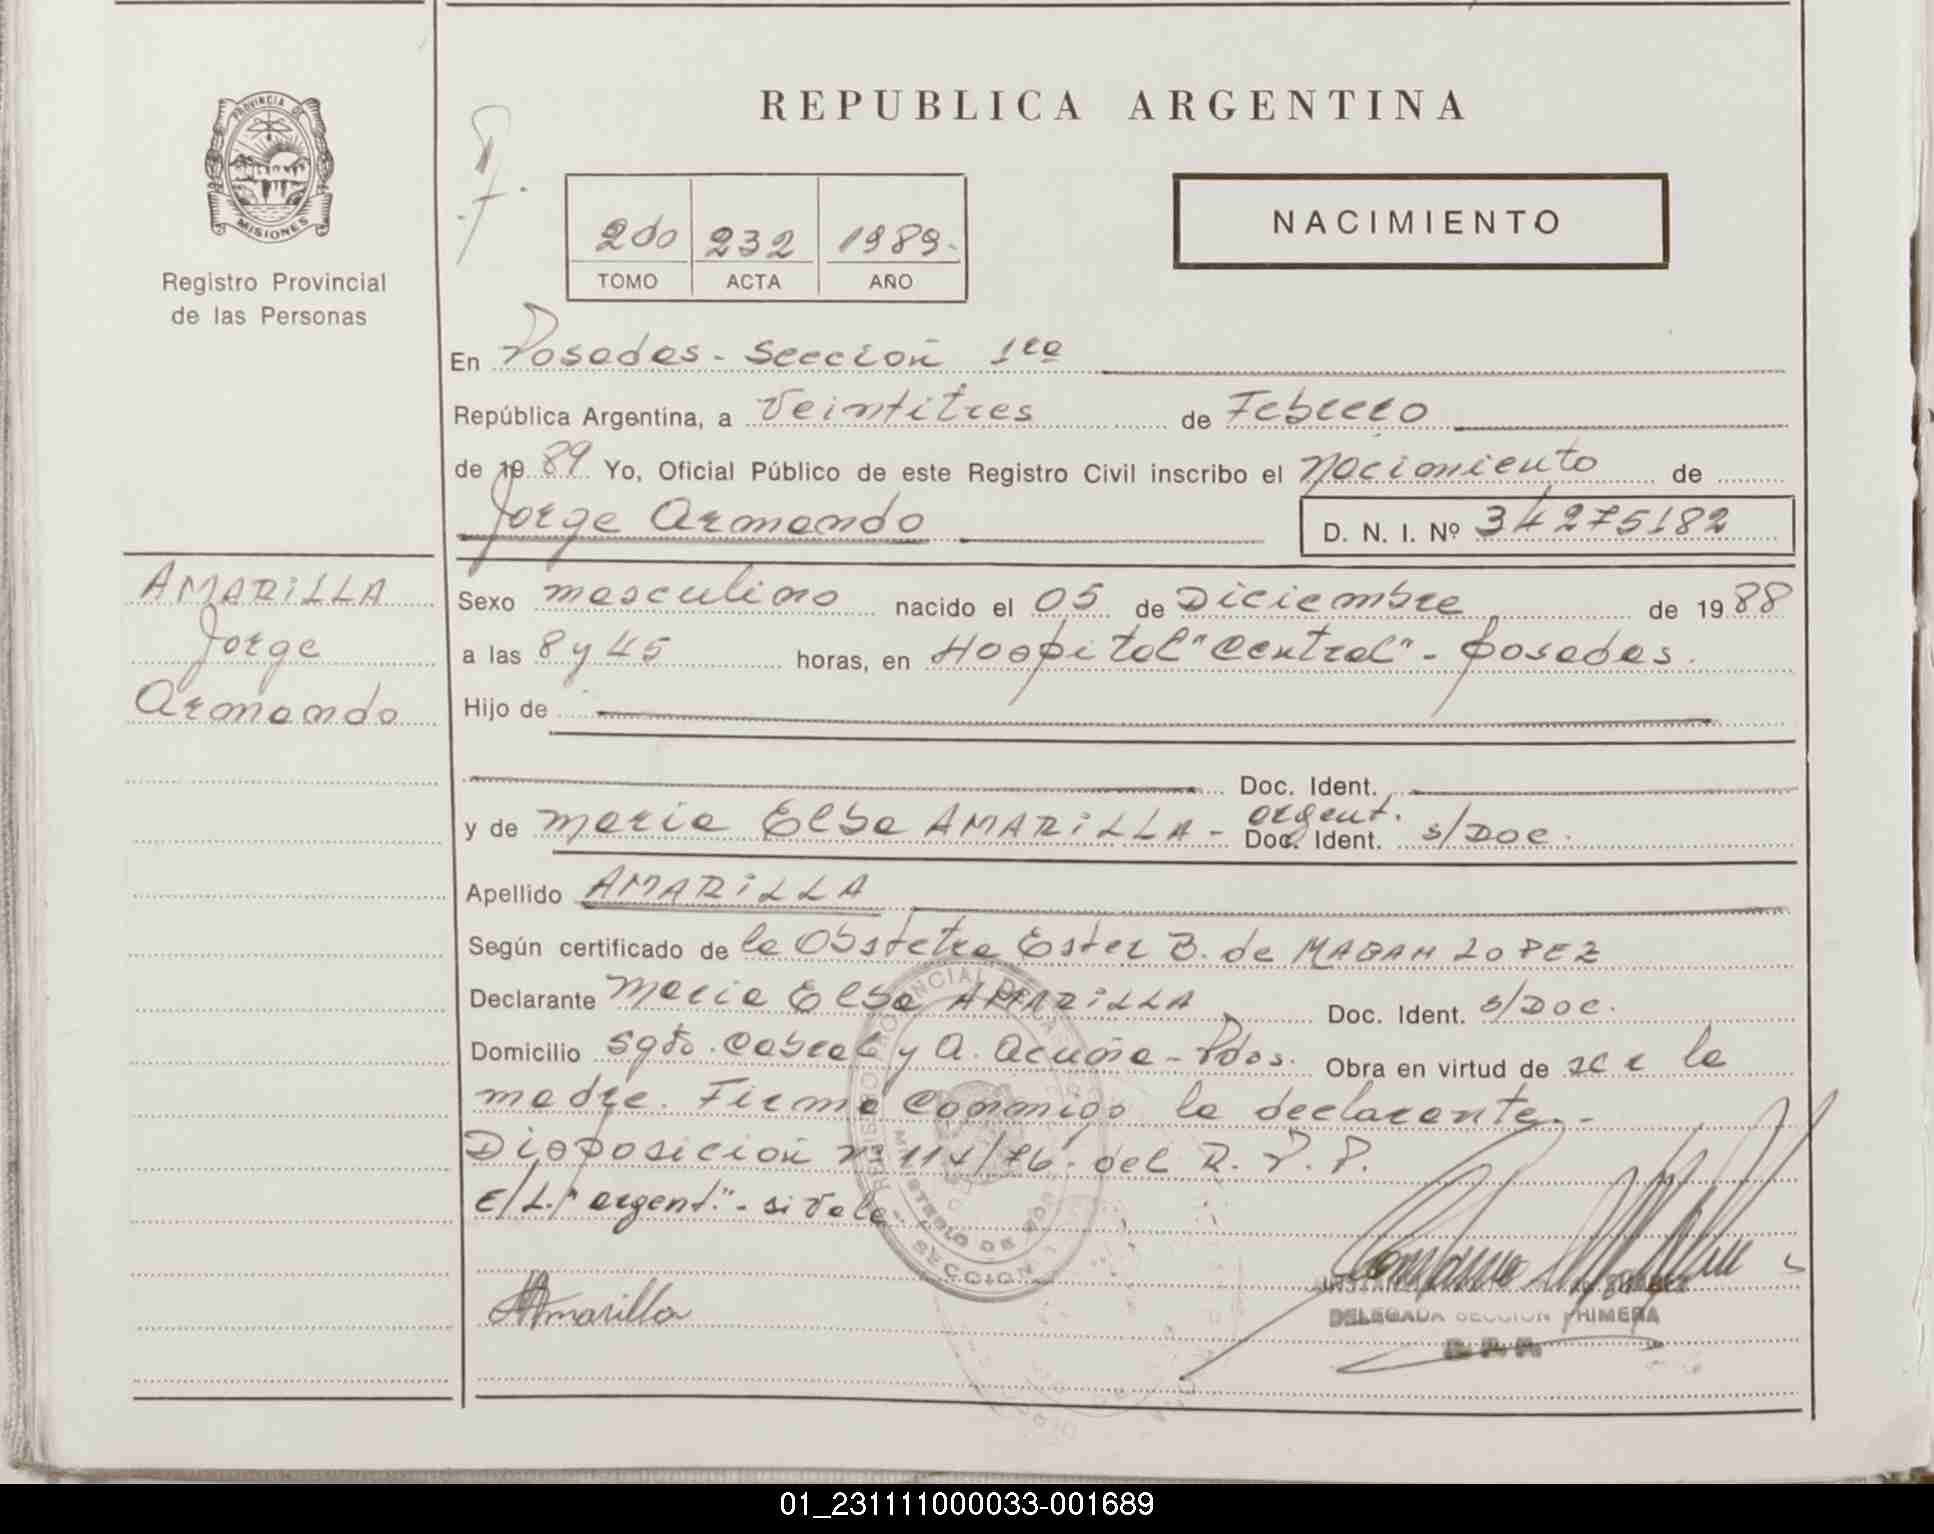 REPUBLICA ARGENTINA
PROVINCIA DE
MISIONES
Registro Provincial
de las Personas
2do 232 1989.
TOMO ACTA AÑO
NACIMIENTO
En Posadas - Sección 1ra
República Argentina, a Veintitres de Febrero
de 1989 Yo, Oficial Público de este Registro Civil inscribo el Nacimiento de
Jorge Armando D. N. I. Nº 34275182
AMARILLA
Jorge
Armando
Sexo masculino nacido el 05 de Diciembre de 1988
a las 8 y 45 horas, en Hospital "Central" - Posadas.
Hijo de
Doc. Ident.
argent.
y de Maria Elba AMARILLA - Doc. Ident. s/Doc.
Apellido AMARILLA
Según certificado de la Obstetra Ester B. de LOPEZ
Declarante Maria Elba AMARILLA Doc. Ident. s/Doc.
Domicilio Sgto. Cabral y A. Acuña - Pdas. Obra en virtud de ser la
madre. Firma conmigo la declarante.-
Disposición nº /76. del R. P. P.
E/L. "argent." - si vale
Amarilla
DELEGADA SECCION PRIMERA
01_231111000033-001689